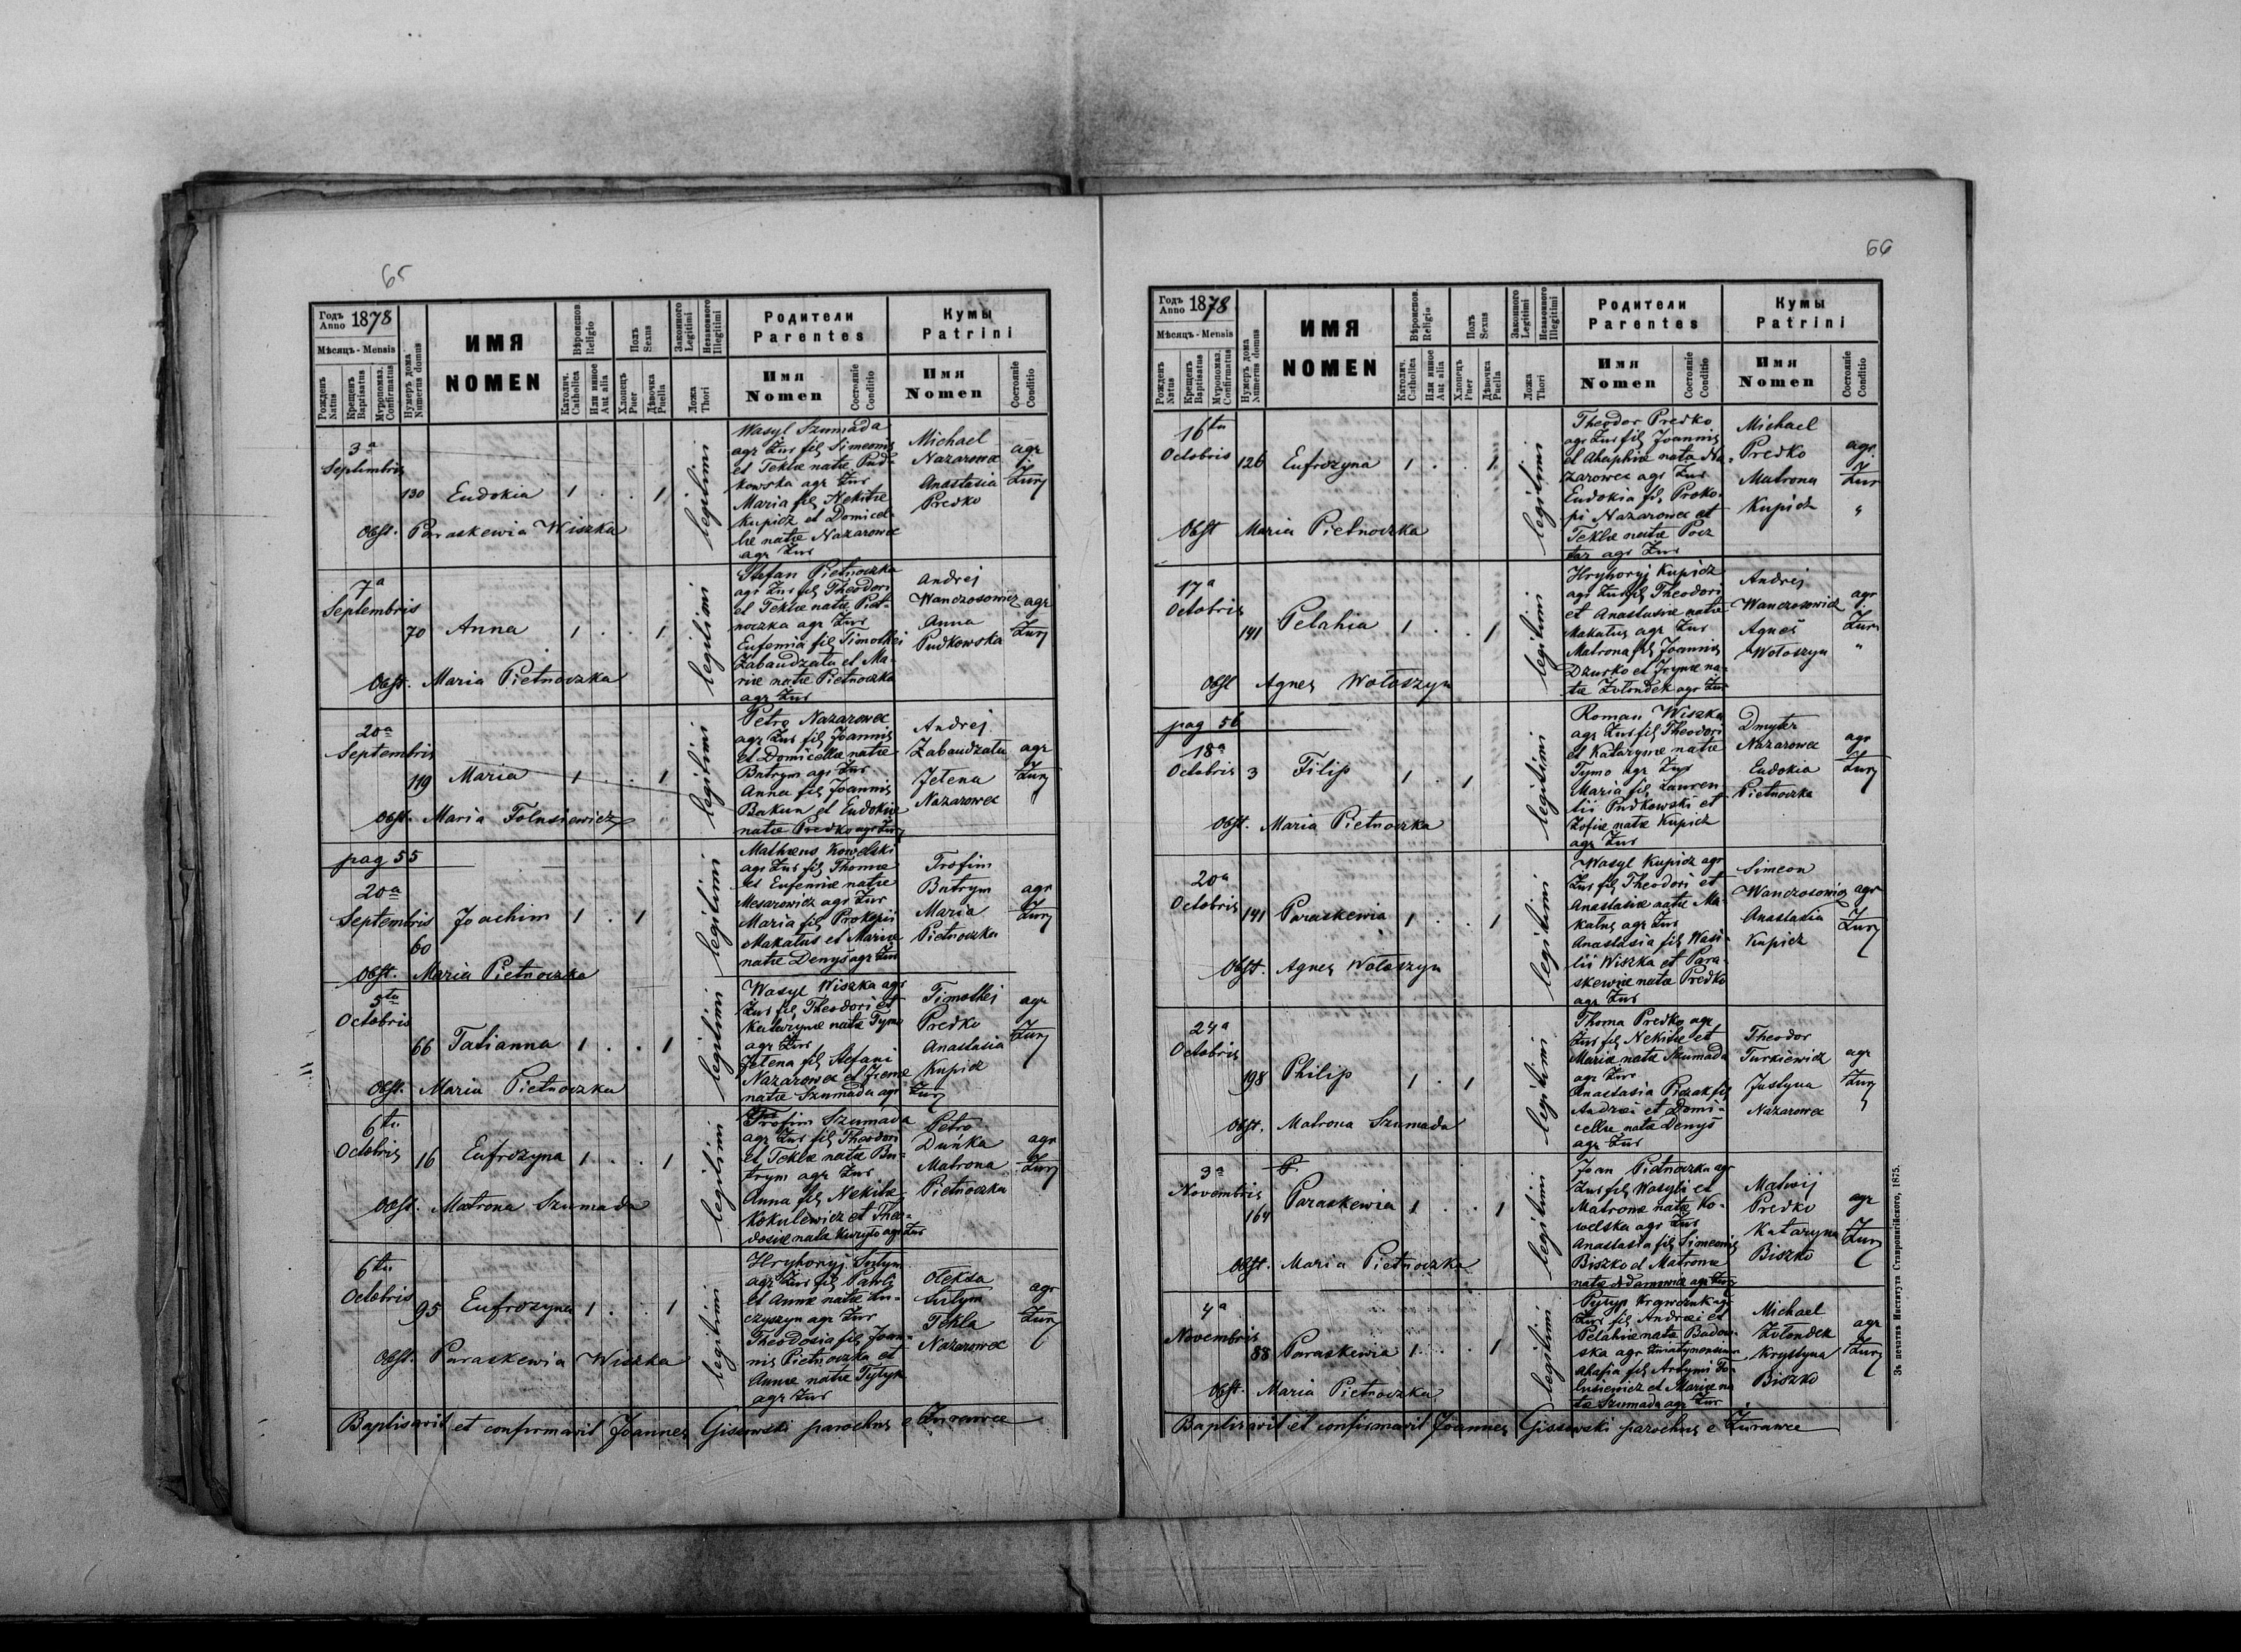 65
Годъ Anno 1878
Мѣсяцъ - Mensis
Рожденъ Natus
Крещенъ Baptisatus
Муропомаз. Confirmatus
Нумеръ дома Numerus domus
ИМЯ
NOMEN
Вѣроиспов. Religio
Католич. Catholica
Или инное Aut alia
Полъ Sexus
Хлопецъ Puer
Дѣвочка Puella
Законного Legitimi
Незаконного Illegitimi
Ложа Thori
Родители
Parentes
Имя
Nomen
Состояніе Conditio
Кумы
Patrini
Имя
Nomen
Состояніе Conditio
3a
Septembris
130 Eudokia 1 . . 1
Obst. Paraskewia Wiszka
legitimi
Wasyl Szumada
agr Żur fil Simeonis
et Teklæ natæ Pud-
kowska agr Żur
Maria fil Nekitæ
Kupicz et Domicel-
læ natæ Nazarowec
agr Żur
Michael
Nazarowec
Anastasia
Predko
agr
Żur
7a
Septembris
70 Anna 1 . . 1
Obst. Maria Pietnoczka
legitimi
Stefan Pietnoczka
agr Żur fil Theodori
et Teklæ natæ Piet-
noczka agr Żur
Eufemia fil Timothei
Zabaudzata et Ma-
riæ natæ Pietnoczka
agr Żur
Andrej
Wanczosowicz
Anna
Pudkowska
agr
Żur
20a
Septembris
119 Maria 1 . . 1
Obst. Maria Tolusiewicz
legitimi
Petro Nazarowec
agr Żur fil Joannis
et Domicellæ natæ
Butrym agr Żur
Anna fil Joannis
Bakun et Eudokiæ
natæ Predko agr Żur
Andrej
Zabaudzata
Jelena
Nazarowec
agr
Żur
pag 55
20a
Septembris
60
Joachim 1 . 1
Obst. Maria Pietnoczka
legitimi
Mathæus Kowelski
agr Żur fil Thomæ
et Eufemiæ natæ
Mesarowicz agr Żur
Maria fil Prokopii
Makatus et Mariæ
natæ Denys agr Żur
Trofim
Butrym
Maria
Pietnoczka
agr
Żur
5ta
Octobris
66 Tatianna 1 . . 1
Obst. Maria Pietnoczka
legitimi
Wasyl Wiszka agr
Żur fil Theodori et
Katarynæ natæ Tymo
agr Żur
Jelena fil Stefani
Nazarowec et Irenæ
natæ Szumada agr Żur
Timothej
Predko
Anastasia
Kupicz
agr
Żur
6ta
Octobris
16 Eufrozyna 1 . . 1
Obst. Matrona Szumada
legitimi
Trofim Szumada
agr Żur fil Theodori
et Teklæ natæ Bu-
trym agr Żur
Anna fil Nekitæ
Kokulewicz et Theo-
dosiæ nata Kuryło agr Żur
Petro
Duńka
Matrona
Pietnoczka
agr
Żur
6ta
Octobris
95 Eufrozyna 1 . . 1
Obst. Paraskewia Wiszka
legitimi
Hryhoryj Sułym
agr Żur fil Pawli
et Annæ natæ
czyszyn agr Żur
Theodosia fil Joan-
nis Pietnoczka et
Annæ natæ Tytyk
agr Żur
Olexsa
Sułym
Tekla
Nazarowec
agr
Żur
Baptisavit et confirmavit Joannes Gissowski parochus e Żurawce
66
Годъ Anno 1878
Мѣсяцъ - Mensis
Рожденъ Natus
Крещенъ Baptisatus
Муропомаз. Confirmatus
Нумеръ дома Numerus domus
ИМЯ
NOMEN
Вѣроиспов. Religio
Католич. Catholica
Или инное Aut alia
Полъ Sexus
Хлопецъ Puer
Дѣвочка Puella
Законного Legitimi
Незаконного Illegitimi
Ложа Thori
Родители
Parentes
Имя
Nomen
Состояніе Conditio
Кумы
Patrini
Имя
Nomen
Состояніе Conditio
16ta
Octobris
126 Eufrozyna 1 . . 1
Obst Maria Pietnoczka
legitimi
Theodor Predko
agr Żur fil Joannis
et Ahaphiæ nata Na-
zarowec agr Żur
Eudokia fil Proko-
pi Nazarowec et
Teklæ natæ Pocz
tar agr Żur
Michael
Predko
Matrona
Kupicz
agr.
Żur
"
17a
Octobris
141 Pelahia 1 . . 1
Obst Agnes Wołoszyn
legitimi
Hryhoryj Kupicz
agr Żur fil Theodori
et Anastasiæ natæ
Makatus agr Żur
Matrona fil Joannis
Dzusko et Irynæ na-
tæ Żołondek agr Żur
Andrej
Wanczosowicz
Agnes
Wołoszyn
agr
Żur
"
pag 56
18a
Octobris 3 Filip 1 . 1
Obst. Maria Pietnoczka
legitimi
Roman Wiszka
agr Żur fil Theodori
et Katarynæ natæ
Tymo agr Żur
Maria fil Lauren-
tii Pudkowski et
Zofiæ natæ Kupicz
agr Żur
Dmyter
Nazarowec
Eudokia
Pietnoczka
agr
Żur
20a
Octobris 141 Paraskewia 1 . . 1
Obst. Agnes Wołoszyn
legitimi
Wasyl Kupicz agr
Żur fil Theodori et
Anastasiæ natæ Ma-
katus agr Żur
Anastasia fil Wasi-
lii Wiszka et Para-
skewiæ natæ Predko
agr Żur
Simeon
Wanczosowicz
Anastasia
Kupicz
agr
Żur
24a
Octobris
198 Philip 1 . 1
Obst. Matrona Szumada
legitimi
Thoma Predko agr
Żur fil Nekitæ et
Mariæ natæ Szumada
agr Żur
Anastasia Piczak fil
Andræi et Domi-
cellæ natæ Denys
agr Żur
Theodor
Turkiewicz
Justyna
Nazarowec
agr
Żur
3a P.
Novembris
164 Paraskewia 1 . . 1
Obst. Maria Pietnoczka
legitimi
Joan Pietnoczka agr
Żur fil Wasyli et
Matronæ natæ Ko-
welska agr Żur
Anastasia fil Simeonis
Biszko et Matronæ
natæ Adamowicz agr Żur
Matwij
Predko
Kataryna
Biszko
agr
Żur
4a
Novembris
88 Paraskewia 1 . . 1
Obst. Maria Pietnoczka
legitimi
Pyłyp Krawczuk agr
Żur fil Andræi et
Pelahiæ nata Badow-
ska agr
Ahafia fil Artymi To-
lusiewicz et Mariæ na
tæ Szumada agr Żur
Michael
Żołondek
Krystyna
Biszko
agr
Żur
Baptisavit et confirmavit Joannes Gissowski parochus e Żurawce
Зъ печатнѣ Института Ставропигійского, 1875.